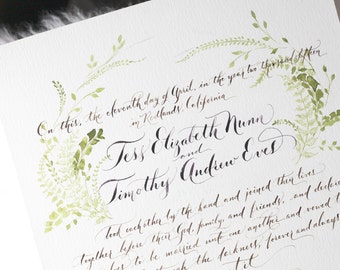 On this, the eleventh day of April, in the year two thousand fifteen
in Redlands, California
Tess Elizabeth Nunn
and
Timothy Andrew Eves
took each other by the hand and joined their lives
together before their God, family and friends, and declared
to be married unto one another and vowed to
through the darkness, forever and always